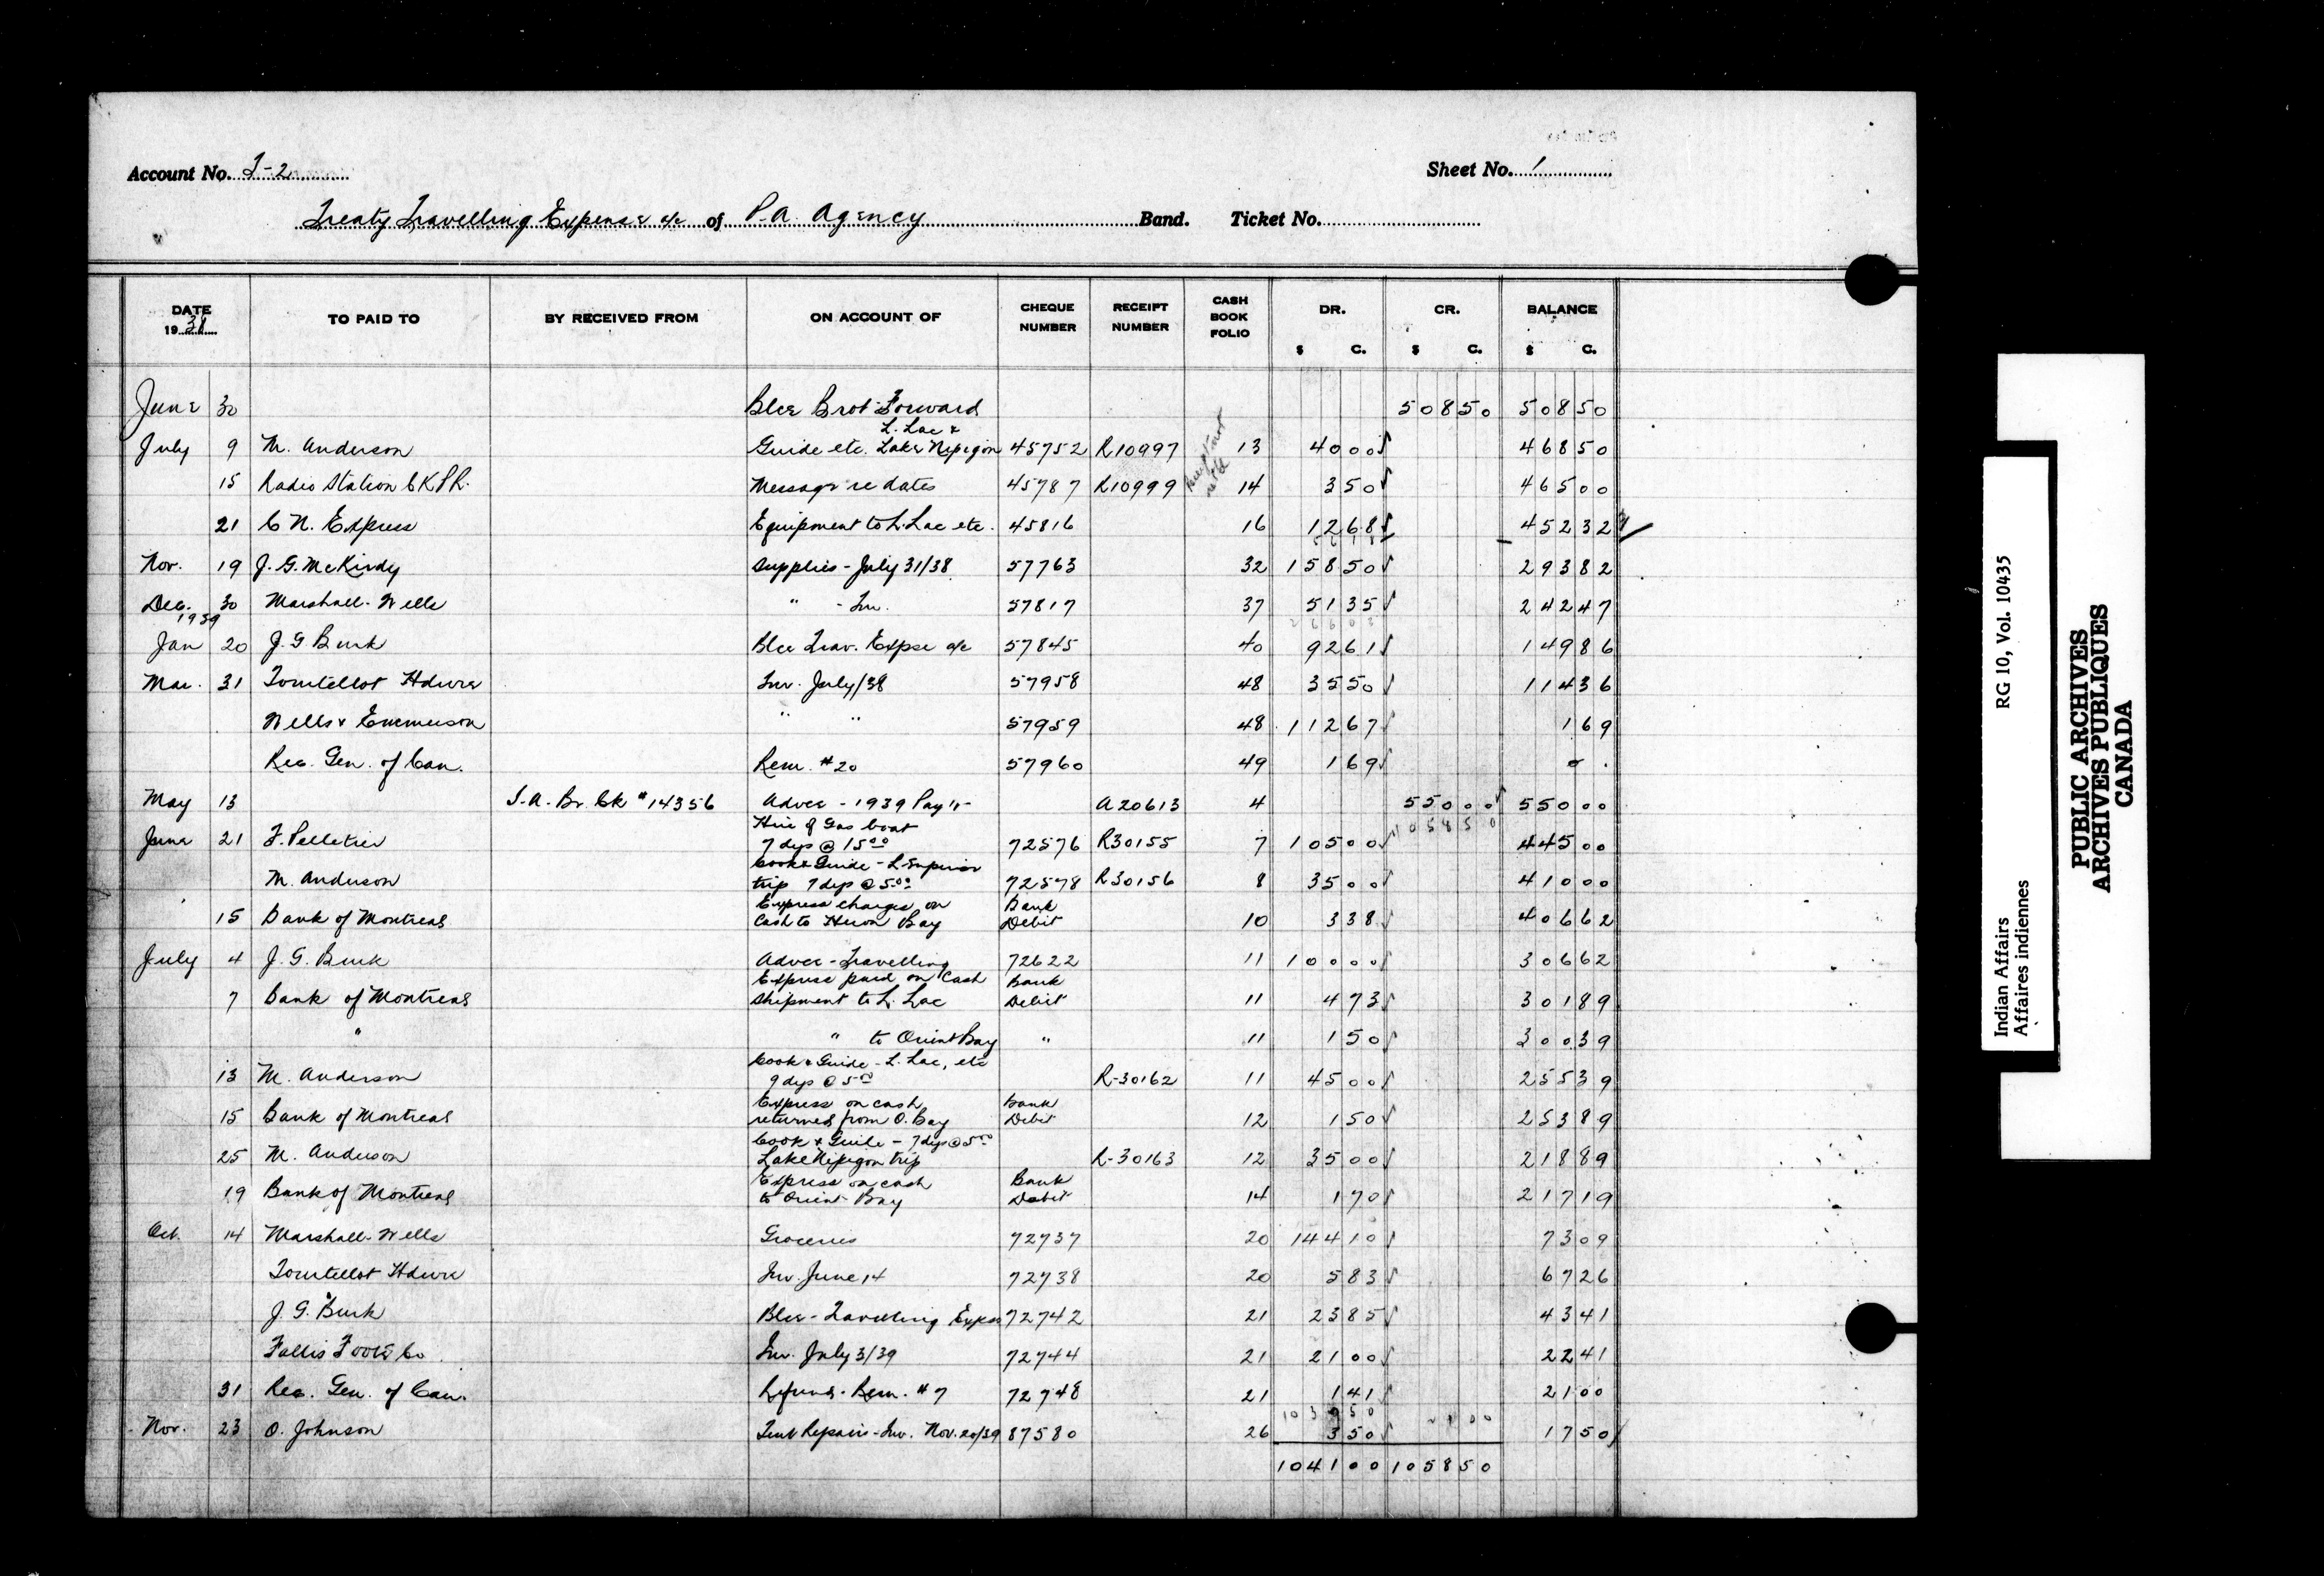 Account No. T-2
Sheet No. 1
Treaty Travelling Expense a/c of P.A. Agency Band. Ticket No.
DATE 1938 TO PAID TO BY RECEIVED FROM ON ACCOUNT OF CHEQUE NUMBER RECEIPT NUMBER CASH BOOK FOLIO DR. CR. BALANCE
$ C. $ C. $ C.
June 30 Blce Brot Forward 508 50 508 50
L. Lac &
July 9 M. Anderson Guide etc. Lake Nipigon 45752 R10997 13 40 00 468 50
15 Radio Station CKPR. Message re dates 45787 R10999 14 3 50 465 00
21 C N. Express Equipment to L. Lac etc. 45816 16 12 68 452 32
Nov. 19 J. G. McKirdy Supplies - July 31/38 57763 32 158 50 293 82
Dec. 30 Marshall-Wells " - Inv. 57817 37 51 35 242 47
1939
Jan 20 J. G Burk Blce Trav. Expse a/c 57845 40 92 61 149 86
Mar. 31 Tourtellot Hdwre Inv. July/38 57958 48 35 50 114 36
Wells & Emmerson " " 57959 48 112 67 1 69
Rec. Gen. of Can. Rem. #20 57960 49 1 69 0
May 13 I.A. Br. Ck #14356 Advce - 1939 Pay't A20613 4 550 00 550 00
1058 50
Hire of Gas boat
June 21 F. Pelletier 7 dys @ 15.00 72576 R30155 7 105 00 445 00
Cook & Guide - L. Superior
M. Anderson trip 7 dys @ 5.00 72578 R30156 8 35 00 410 00
Express charges on Bank
15 Bank of Montreal Cash to Heron Bay Debit 10 3 38 406 62
July 4 J. G. Burk Advce - Travelling 72622 11 100 00 306 62
Express paid on Cash Bank
7 Bank of Montreal Shipment to L. Lac Debit 11 4 73 301 89
" " to Orient Bay " 11 1 50 300 39
Cook & Guide - L. Lac, etc
13 M. Anderson 9 dys @ 5.00 R-30162 11 45 00 255 39
Express on cash Bank
15 Bank of Montreal returned from O. Bay Debit 12 1 50 253 89
Cook & Guide - 7 dys @ 5.00
25 M. Anderson Lake Nipigon trip R-30163 12 35 00 218 89
Express on cash Bank
19 Bank of Montreal to Orient Bay Debit 14 1 70 217 19
Oct. 14 Marshall-Wells Groceries 72737 20 144 10 73 09
Tourtellot Hdwre Inv. June 14 72738 20 5 83 67 26
J. G. Burk Blce - Travelling Expse 72742 21 23 85 43 41
Inv. July 3/39 72744 21 21 00 22 41
31 Rec. Gen. of Can. Refund - Rem. #7 72748 21 1 41 21 00
Nov. 23 O. Johnson Tent Repairs - Inv. Nov. 20/39 87580 26 3 50 17 50
1041 00 1058 50
Indian Affairs RG 10, Vol. 10435
Affaires indiennes
PUBLIC ARCHIVES
ARCHIVES PUBLIQUES
CANADA